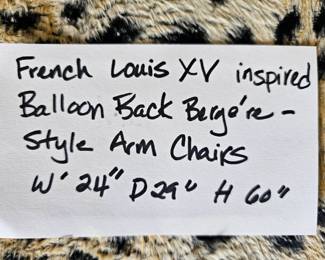 French Louis XV inspired
Balloon Back Bergére -
Style Arm Chairs
W' 24" D 29" H 60"